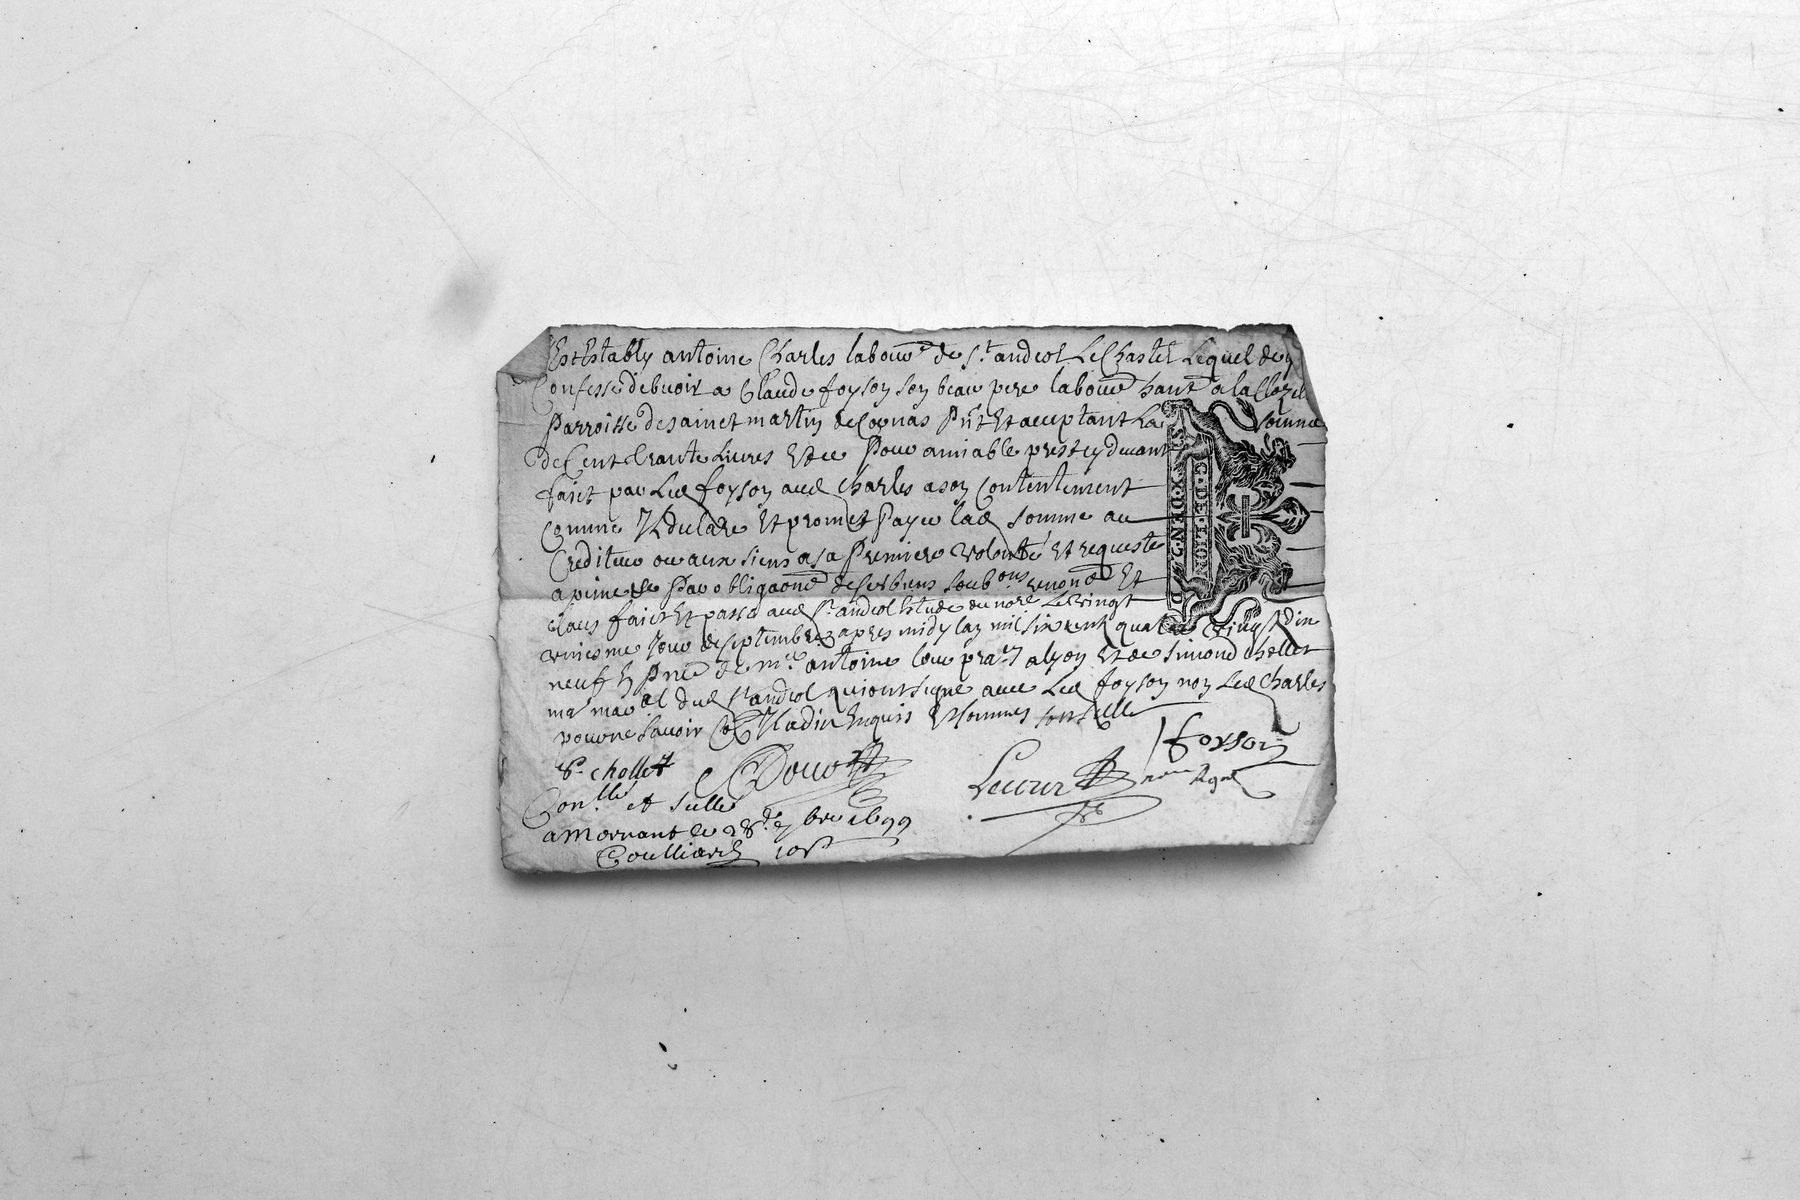 Est Estably antoine Charles labour de St andeol Le Chastel Lequel de
Confesse debuoir a Claude foyson son beau pere labour hant a la
Parroisse de sainct martin de Cornas Pnt Et acceptant La somme
de Cent trante Liures Et ce Pour amiable prest cy deuant
faict par Led foyson aud Charles a son Contentement
Comme Il declare Et promet Payer lad somme au
Crediteur ou aux siens a sa Premiere volonté Et requeste
a peine Par obligaone de ses biens soub ons renonce Et
claus faict Et passé aud St andeol Estude du nore Le vingt
mesme Jour de septembre apres midy lan mil six cent quatre vingt Dix
neuf En Pnce de mre antoine pra a lyon Et de Simond chollet
mar dud St andeol qui ont signé auec Led foyson non Led Charles
pour ne sauoir Enquis Et sommes
S. chollet
foyson
Conlle et sellé
a Mornant le 28e 7bre 1699